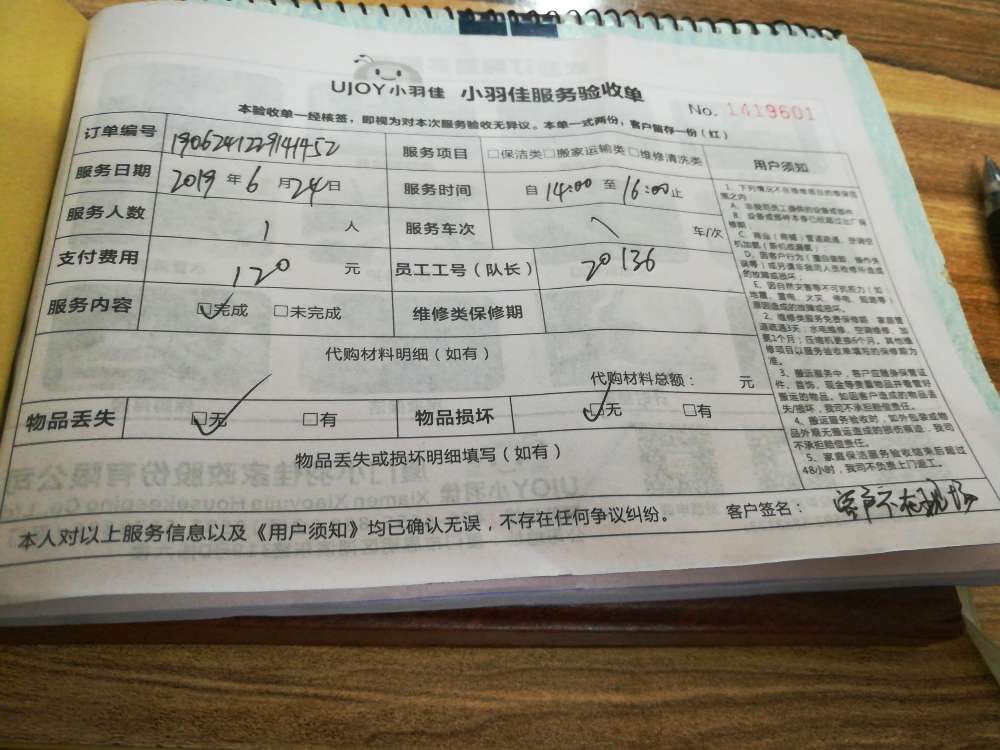 UJOY小羽佳 小羽佳服务验收单
No. 1419601
本验收单一经核签，即视为对本次服务验收无异议。本单一式两份，客户留存一份（红）
订单编号 1906241229141452 服务项目 □保洁类□搬家运输类□维修清洗类
服务日期 2019 年 6 月 24 日 服务时间 自 14:00 至 16:00 止
服务人数 1 人 服务车次 车/次
支付费用 120 元 员工工号（队长） 20136
服务内容 ☑完成 □未完成 维修类保修期
代购材料明细（如有）
代购材料总额： 元
物品丢失 ☑无 □有 物品损坏 ☑无 □有
物品丢失或损坏明细填写（如有）
本人对以上服务信息以及《用户须知》均已确认无误，不存在任何争议纠纷。 客户签名： 客户不在现场
用户须知
1、下列情况不在维修项目的维保范
围之内
A、非我司员工操作的设备或部件
B、设备或部件本身已经超过出厂保
修期
C、商业（商铺）管道疏通、空调空
机加氨（新机或漏氨）
D、因客户行为（擅自装卸、操作失
误等）或另请非我司人员维修所造成
的故障或损坏
E、因自然灾害等不可抗拒力（如：
地震、雷电、火灾、停电、短路等）
原因造成的故障或损坏。
2、维修类服务免费保修期：家庭管
道疏通3天；水电维修、空调维修、加
氨1个月；压缩机更换6个月。其他维
修项目以服务验收单填写的保修期为
准。
3、搬运服务中，客户应随身保管证
件、首饰、现金等贵重物品并看管好
搬运的物品。如因客户造成的物品丢
失/损坏，我司不承担赔偿责任。
4、搬运服务验收时，如外包装或物
品外观无搬运造成的损伤痕迹，我司
不承担赔偿责任。
5、家庭保洁服务验收结束后超过
48小时，我司不负责上门返工。